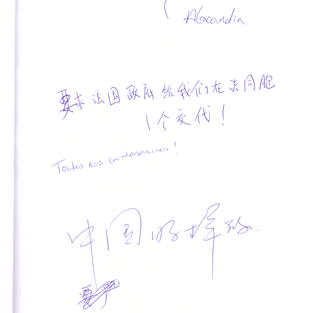 Alexandra
要求法国政府给我们在法同胞
1个交代!
Toutes nos condoléances!
中国好样的.